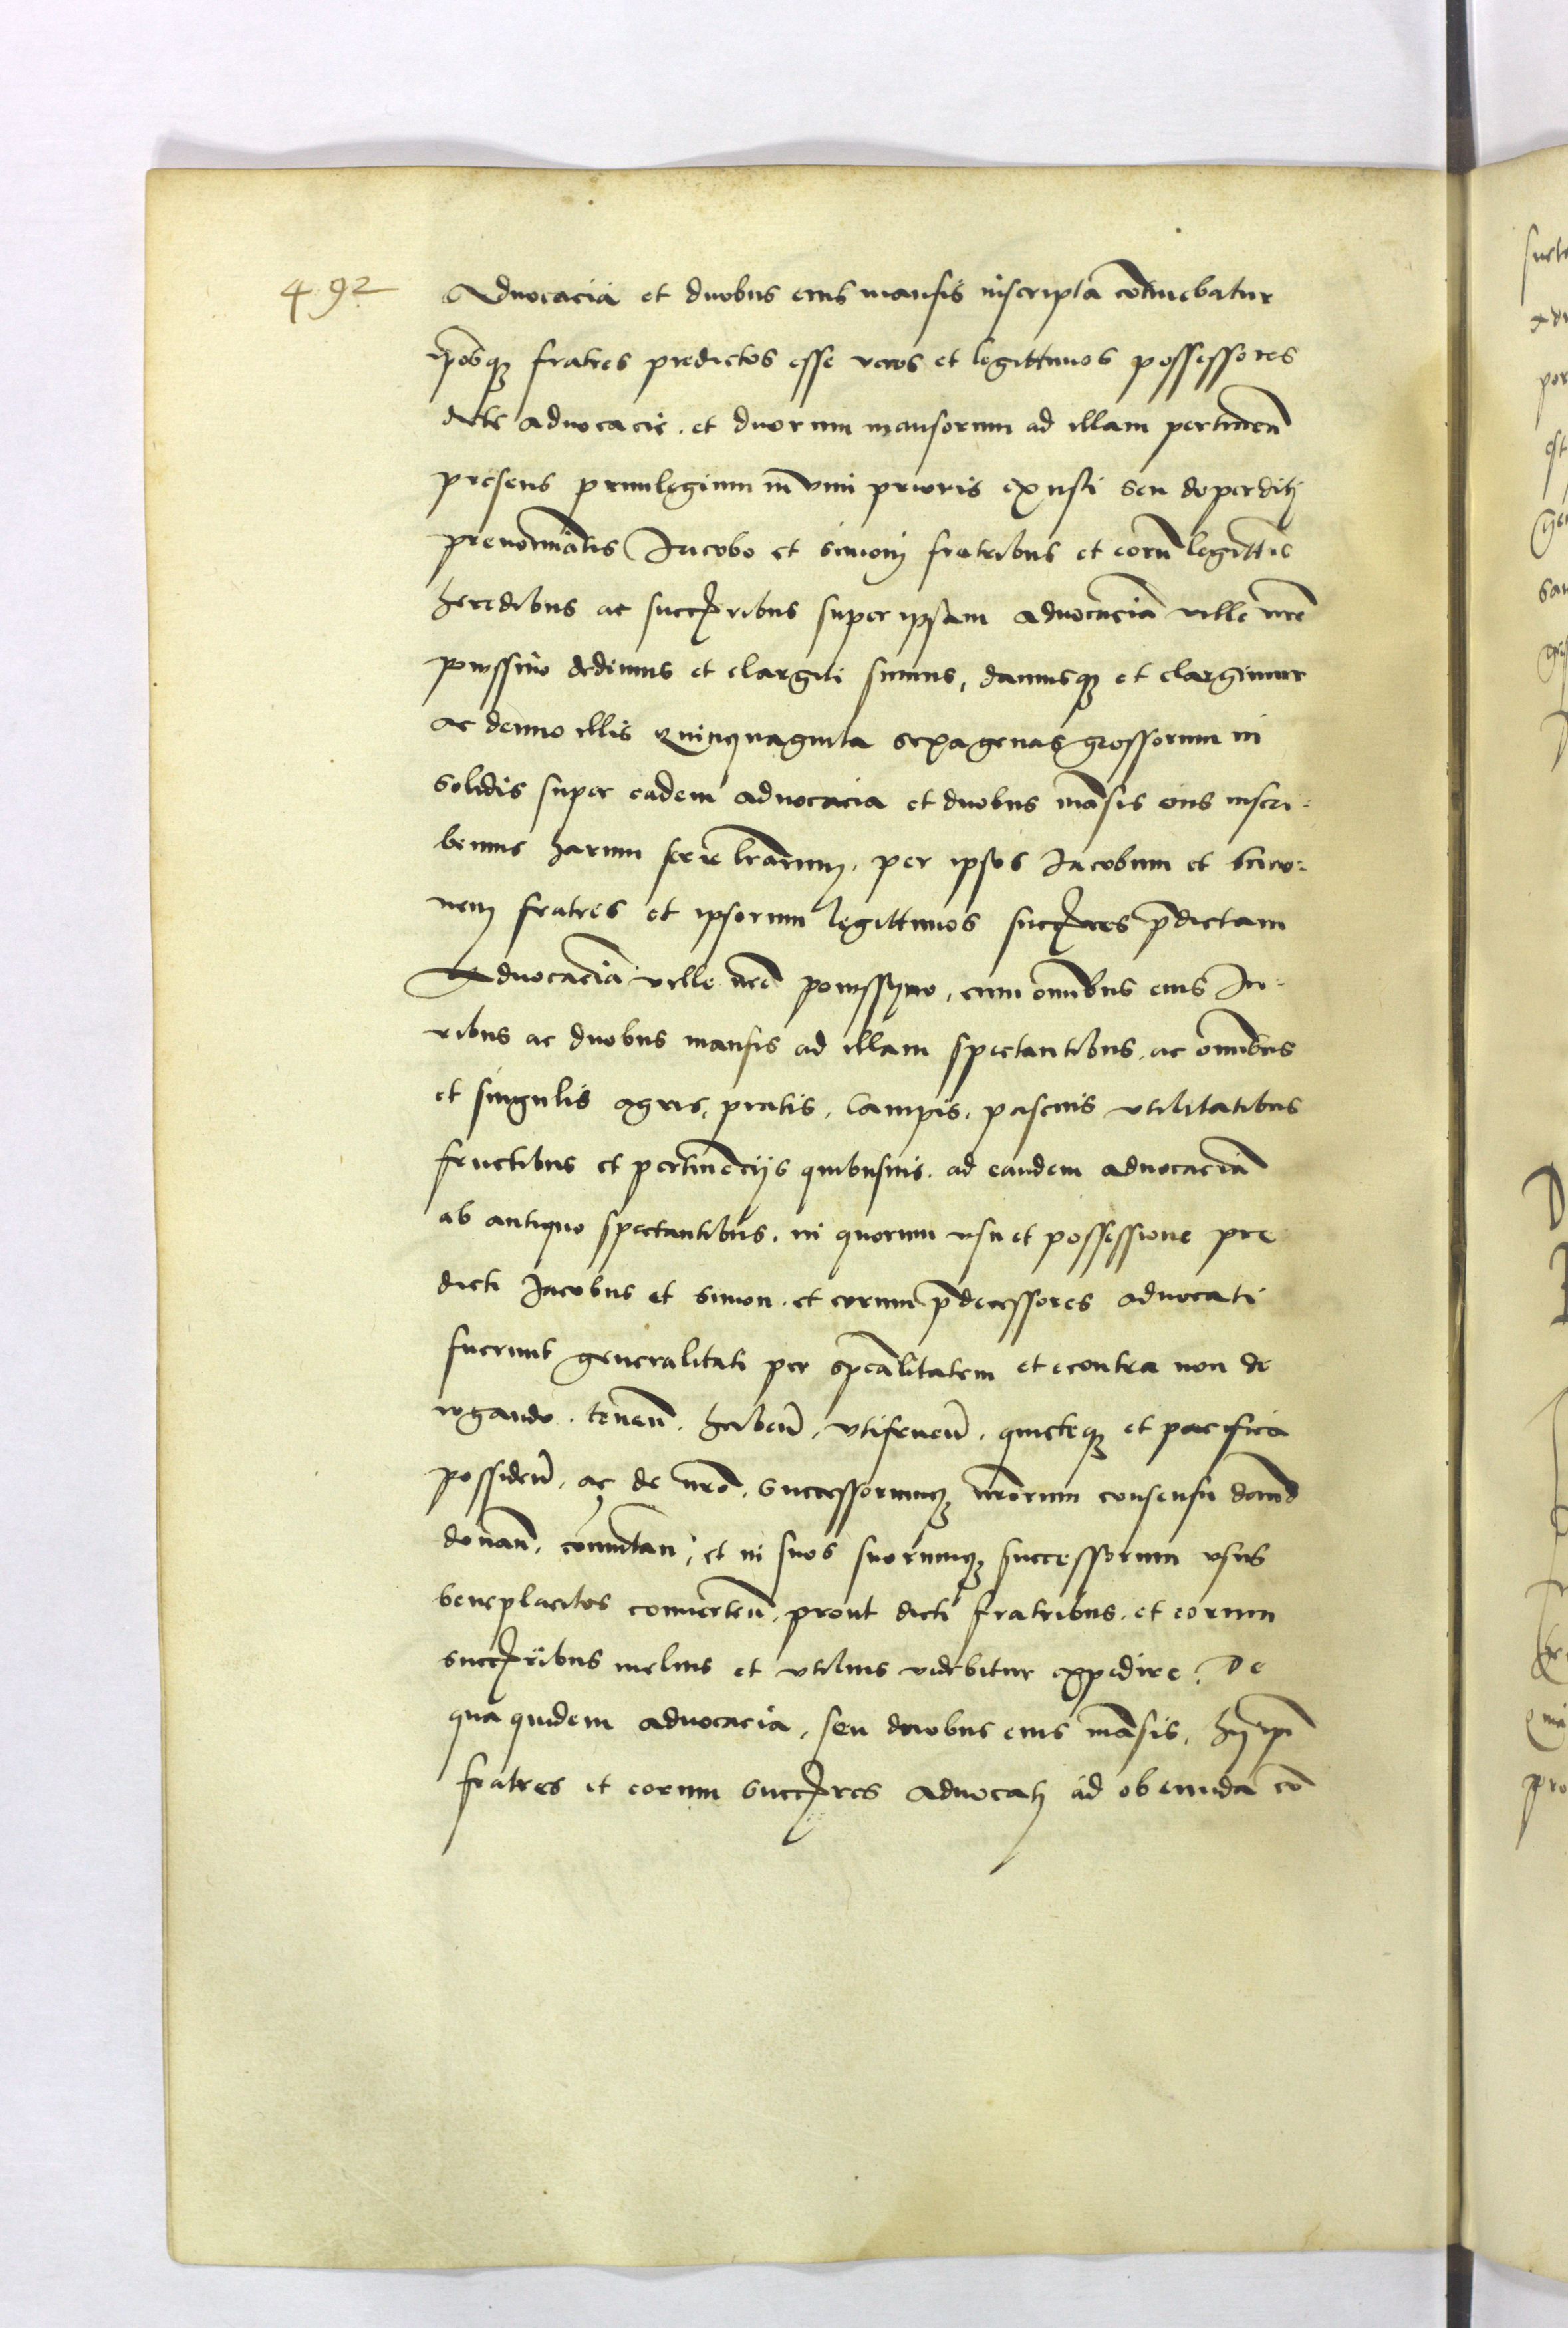 492
Advocacia et duobus eius mansis inscripta cōtinebatur
ip̄osq fratres predictos esse veros et legittimos possessores
dicte advocacie. et duorum mansorum ad illam pertineñ
presens privilegium in vim prioris exusti seu deperditi
prenominatis Jacobo et Simoni fratribus et eorū legittīs
heredibus ac succ̄ribus super ipsam advocaciā ville nr̄e
powssino dedimus et elargiti sumus, damusq et elargimur
ac denuo illis quinquaginta sexagenas grossorum in
solidis super eadem advocacia et duobus māsis eius inscri-
bemus harum serie lr̄arum. per ipsos Jacobum et Simo-
nem fratres et ipsorum legittimos succ̄res p̄dictam
Advocaciā ville nr̄e powssyno, cum om̄ibus eius Ju-
ribus ac duobus mansis ad illam spectantibus. ac om̄ibus
et singulis agris, pratis, campis, pascuis utilitatibus
fructibus et pertinēciis quibusvis. ad eandem advocaciā
ab antiquo spectantibus. in quorum usu et possessione pre
dicti Jacobus et Simon. et eorum p̄decessores advocati
fuerunt generalitati per sp̄ealitatem et econtra non de
rogando. teneñ. habeñ. utifrueñ. quieteq et pacifice
possideñ. ac de nr̄o. successorumq nr̄orum consensu dand̄
donañ. cōmutañ, et in suos suorumq successorum usus
beneplacitos converteñ. prout dictis fratribus. et eorum
succ̄ribus melius et utilius videbitur expedire. De
qua quidem advocacia, seu duobus eius māsis, hij ip̄i
fratres et eorum succ̄res advocati ad obeunda cō